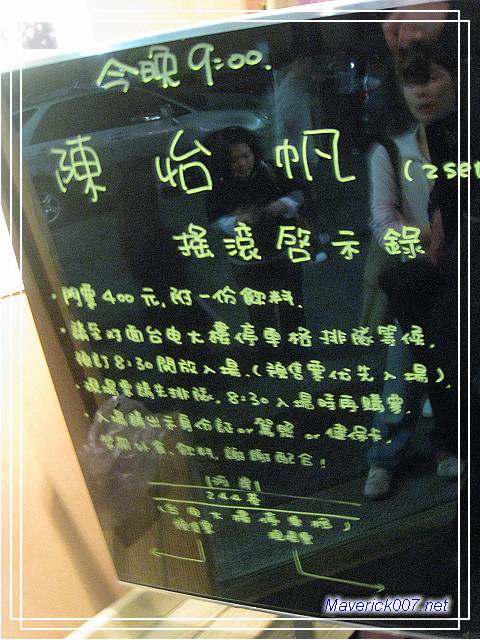 今晚9:00.
陳怡帆(2set
搖滾啓示錄
·門票400元,附一份飲料.
·請至對面台电大樓停車格排隊等候,
預訂8:30開放入場.(預售票优先入場).
·現場票請先排隊,8:30入場時再購票.
·入場請出示身份証or駕照or健保卡.
禁帶外食、飲料,謝謝配合!
244巷
(台电大樓停車格)
預售票
現場票
Maverick007.net